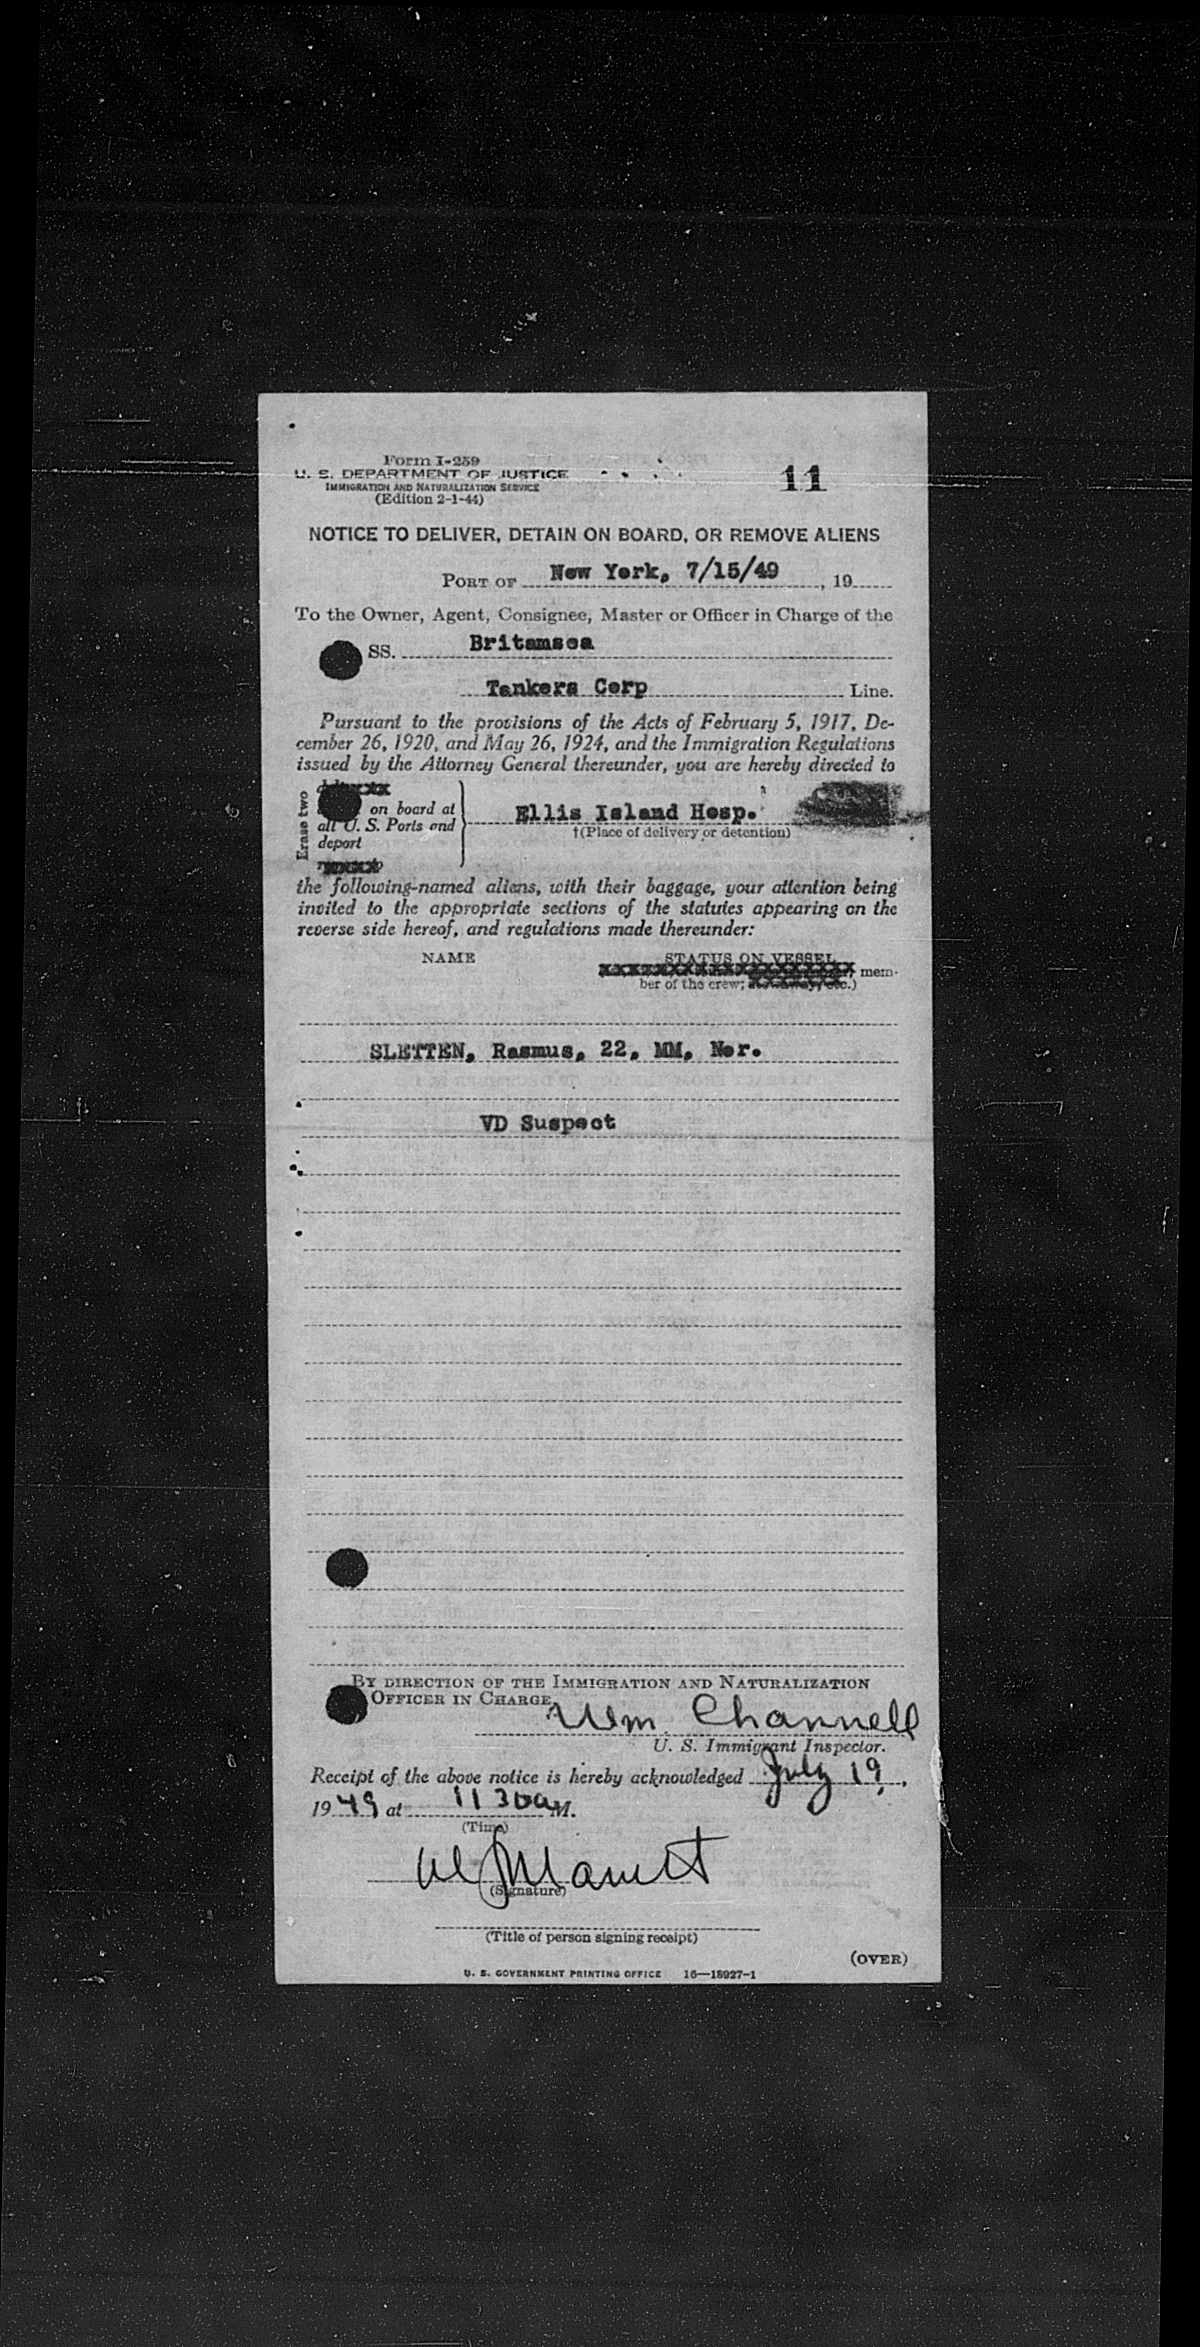 Form I-259
U. S. DEPARTMENT OF JUSTICE
IMMIGRATION AND NATURALIZATION SERVICE
(Edition 2-1-44)
11
NOTICE TO DELIVER, DETAIN ON BOARD, OR REMOVE ALIENS
PORT OF New York, 7/15/49, 19
To the Owner, Agent, Consignee, Master or Officer in Charge of the
SS. Britamsea
Tankers Corp Line.
Pursuant to the provisions of the Acts of February 5, 1917, De-
cember 26, 1920, and May 26, 1924, and the Immigration Regulations
issued by the Attorney General thereunder, you are hereby directed to
Erase two
on board at
all U. S. Ports and
deport
Ellis Island Hosp.
†(Place of delivery or detention)
the following-named aliens, with their baggage, your attention being
invited to the appropriate sections of the statutes appearing on the
reverse side hereof, and regulations made thereunder:
NAME STATUS ON VESSEL
mem-
ber of the crew; etc.)
SLETTEN, Rasmus, 22, MM, Nor.
VD Suspect
BY DIRECTION OF THE IMMIGRATION AND NATURALIZATION
OFFICER IN CHARGE.
Wm. Channell
U. S. Immigrant Inspector.
Receipt of the above notice is hereby acknowledged July 19,
1949 at 11 30a M.
(Time)
(Signature)
(Title of person signing receipt)
(OVER)
U. S. GOVERNMENT PRINTING OFFICE 16—18927-1